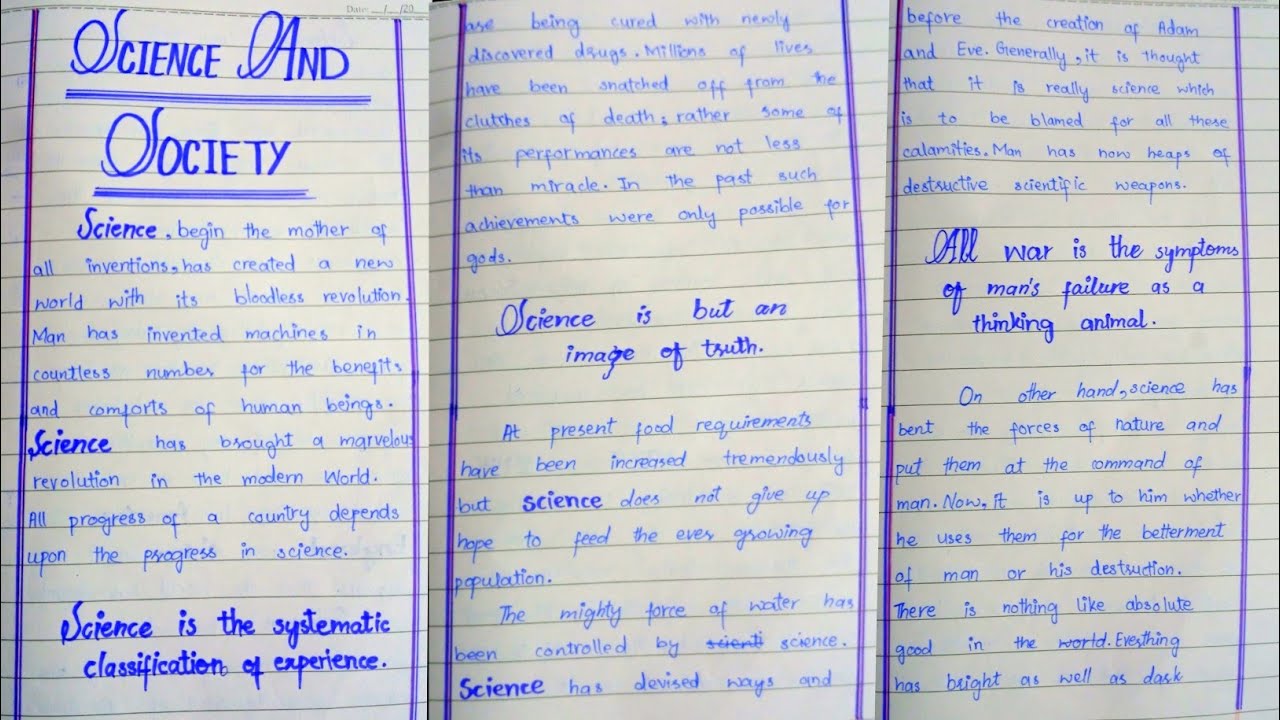 Date: __/__/20
SCIENCE AND
SOCIETY
Science, begin the mother of
all inventions, has created a new
world with its bloodless revolution.
Man has invented machines in
countless number for the benefits
and comforts of human beings.
Science has brought a marvelous
revolution in the modern World.
All progress of a country depends
upon the progress in science.
Science is the systematic
classification of experience.
are being cured with newly
discovered drugs. Millions of lives
have been snatched off from the
clutches of death; rather some of
its performances are not less
than miracle. In the past such
achievements were only possible for
gods.
Science is but an
image of truth.
At present food requirements
have been increased tremendously
but science does not give up
hope to feed the ever growing
population.
The mighty force of water has
been controlled by scienti science.
Science has devised ways and
before the creation of Adam
and Eve. Generally, it is thought
that it is really science which
is to be blamed for all these
calamities. Man has now heaps of
destructive scientific weapons.
All war is the symptoms
of man's failure as a
thinking animal.
On other hand, science has
bent the forces of nature and
put them at the command of
man. Now, it is up to him whether
he uses them for the betterment
of man or his destruction.
There is nothing like absolute
good in the world. Everything
has bright as well as dark